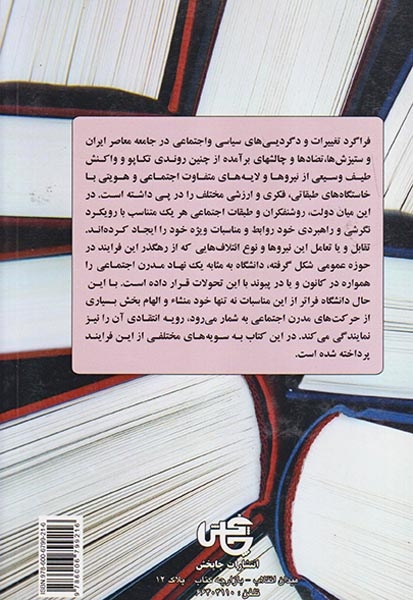 فراگرد تغییرات و دگردیسی‌های سیاسی واجتماعی در جامعه معاصر ایران
و ستیزش‌ها،تضادها و چالشهای برآمده از چنین روندی تکاپو و واکنش
طیف وسیعی از نیروها و لایه‌های متفاوت اجتماعی و هویتی با
خاستگاههای طبقاتی، فکری و ارزشی مختلف را در پی داشته است. در
این میان دولت، روشنفکران و طبقات اجتماعی هر یک متناسب با رویکرد
نگرشی و راهبردی خود روابط و مناسبات ویژه خود را ایجاد کرده‌اند.
تقابل و یا تعامل این نیروها و نوع ائتلاف‌هایی که از رهگذر این فرایند در
حوزه عمومی شکل گرفته، دانشگاه به مثابه یک نهاد مدرن اجتماعی را
همواره در کانون و یا در پیوند با این تحولات قرار داده است. با این
حال دانشگاه فراتر از این مناسبات نه تنها خود منشاء و الهام بخش بسیاری
از حرکت‌های مدرن اجتماعی به شمار می‌رود، رویه انتقادی آن را نیز
نمایندگی می‌کند. در این کتاب به سویه‌های مختلفی از این فرایند
پرداخته شده است.
انتشارات چاپخش
میدان انقلاب - بازارچه کتاب پلاک ۱۲
تلفن: ۶۶۴۰۴۱۱۰
9 786006 799216